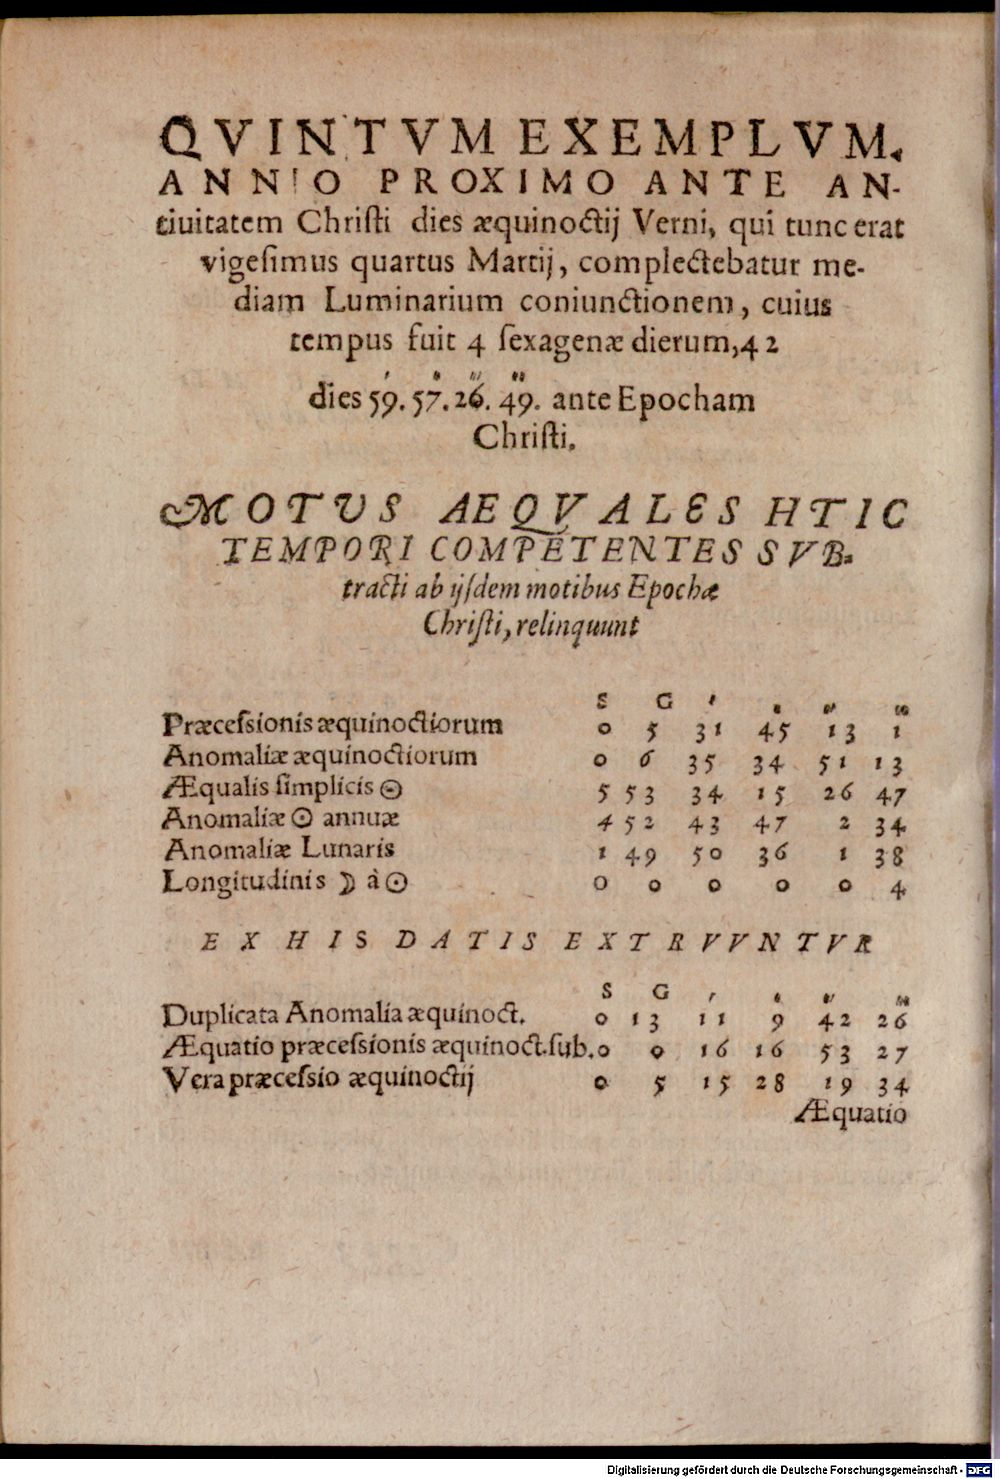 QVINTVM EXEMPLVM.
ANNO PROXIMO ANTE AN-
tiuitatem Christi dies æquinoctij Verni, qui tunc erat
vigesimus quartus Martij, complectebatur me-
diam Luminarium coniunctionem, cuius
tempus fuit 4 sexagenæ dierum, 42
′ ″ ‴ ⁗
dies 59. 57. 26. 49. ante Epocham
Christi.
MOTVS AEQVALES HTIC
TEMPORI COMPETENTES SVB-
tracti ab ijsdem motibus Epochæ
Christi, relinquunt
S G ′ ″ ‴ ⁗
Præcessionis æquinoctiorum 0 5 31 45 13 1
Anomaliæ æquinoctiorum 0 6 35 34 51 13
Æqualis simplicis ☉ 5 53 34 15 26 47
Anomaliæ ☉ annuæ 4 52 43 47 2 34
Anomaliæ Lunaris 1 49 50 36 1 38
Longitudinis ☽ à ☉ 0 0 0 0 0 4
EX HIS DATIS EXTRVVNTVR
S G ′ ″ ‴ ⁗
Duplicata Anomalia æquinoct. 0 13 11 9 42 26
Æquatio præcessionis æquinoct. sub. 0 0 16 16 53 27
Vera præcessio æquinoctij 0 5 15 28 19 34
Æquatio
Digitalisierung gefördert durch die Deutsche Forschungsgemeinschaft - DFG